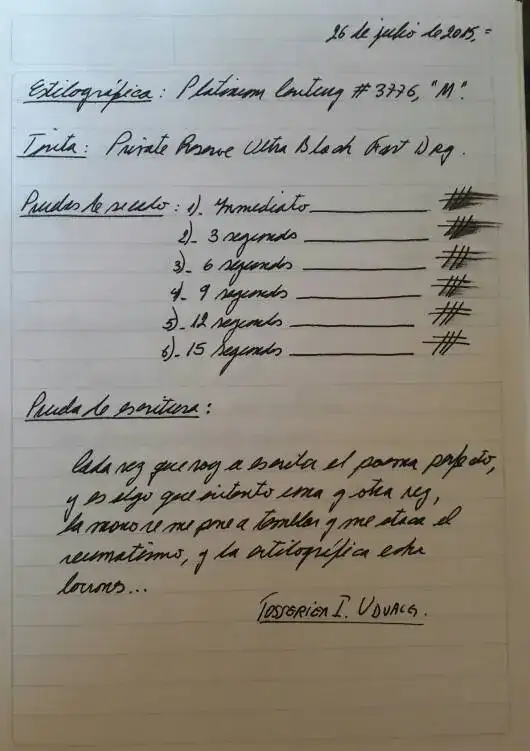 26 de julio de 2015.=
Estilográfica: Platinum Century #3776, "M".
Tinta: Private Reserve Ultra Black Fast Dry.
Pruebas de secado: 1). Inmediato
2)- 3 segundos
3)- 6 segundos
4)- 9 segundos
5)- 12 segundos
6)- 15 segundos
Prueba de escritura:
Cada vez que voy a escribir el poema perfecto,
y es algo que intento una y otra vez,
la mano se me pone a temblar y me ataca el
reumatismo, y la estilográfica echa
borrones...